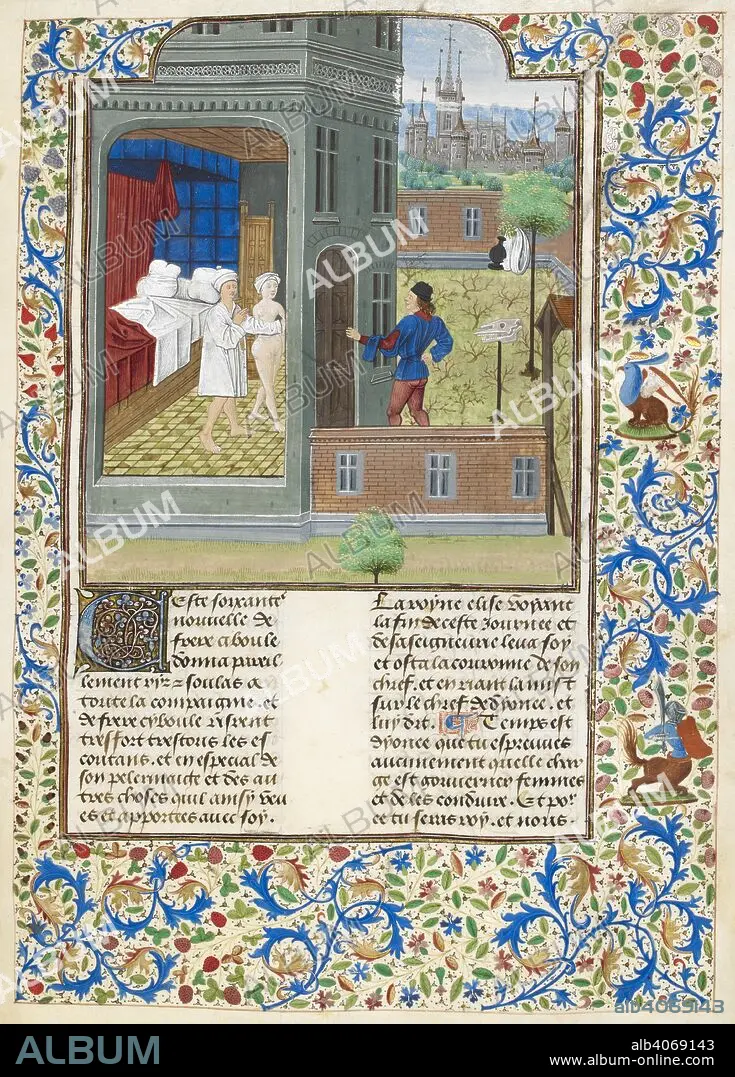 Ceste soixante
nouvelle de
frere ciboule
donna pareil
lement ryz soulas a
toute la compaignie. et
de frere cyboule risrent
tresfort trestous les es
coutans. et en especial de
son pelerinaige et des au
tres choses quil ainsy veu
es et apportees avec soy.
La royne elise voyant
la fin de ceste Journee et
de sa seigneurie leva soy
et osta la couronne de son
chef. et en riant la mist
sur le chref de dyonee. et
luy dit. Temps est
dyonee que tu espreuves
aucunement quelle char
ge est gouverner femmes
et de les conduire. Et por
ce tu seras roy. et nous
ALBUM
alb4069143
ALBUM
alb4069143
www.album-online.com